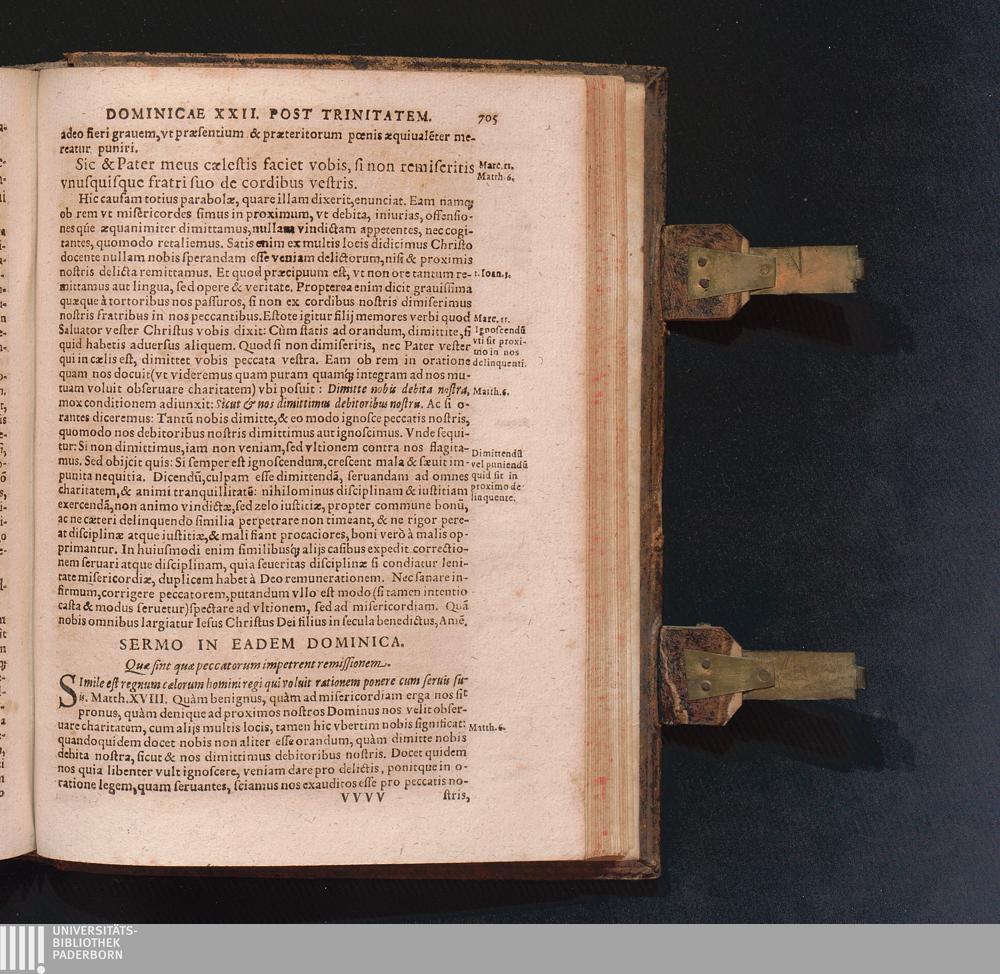 DOMINICAE XXII. POST TRINITATEM. 705
adeo fieri grauem, vt præsentium & præteritorum pœnis æquiualẽter me-
reatur puniri.
Sic & Pater meus cælestis faciet vobis, si non remiseritis
vnusquisque fratri suo de cordibus vestris.
Marc.11.
Matth.6.
Hic causam totius parabolæ, quare illam dixerit, enunciat. Eam namq;
ob rem vt misericordes simus in proximum, vt debita, iniurias, offensio-
nesq́ue æquanimiter dimittamus, nullam vindictam appetentes, nec cogi-
tantes, quomodo retaliemus. Satis enim ex multis locis didicimus Christo
docente nullam nobis sperandam esse veniam delictorum, nisi & proximis
nostris delicta remittamus. Et quod præcipuum est, vt non ore tantum re-
1. Ioan.3.
mittamus aut lingua, sed opere & veritate. Propterea enim dicit grauissima
quæque à tortoribus nos passuros, si non ex cordibus nostris dimiserimus
nostris fratribus in nos peccantibus. Estote igitur filij memores verbi quod
Saluator vester Christus vobis dixit: Cùm statis ad orandum, dimittite, si
quid habetis aduersus aliquem. Quod si non dimiseritis, nec Pater vester
qui in cælis est, dimittet vobis peccata vestra. Eam ob rem in oratione
Marc. 11.
Ignoscendũ
vti sit proxi-
mo in nos
delinquenti.
quam nos docuit (vt videremus quam puram quamq; integram ad nos mu-
tuam voluit obseruare charitatem) vbi posuit: Dimitte nobis debita nostra,
Matth.6.
mox conditionem adiunxit: Sicut & nos dimittimus debitoribus nostris. Ac si o-
rantes diceremus: Tantũ nobis dimitte, & eo modo ignosce peccatis nostris,
quomodo nos debitoribus nostris dimittimus aut ignoscimus. Vnde sequi-
tur: Si non dimittimus, iam non veniam, sed vltionem contra nos flagita-
mus. Sed obijcit quis: Si semper est ignoscendum, crescent mala & sæuit im-
punita nequitia. Dicendũ, culpam esse dimittendã, seruandam ad omnes
charitatem, & animi tranquillitatẽ: nihilominus disciplinam & iustitiam
Dimittendũ
vel puniendũ
quid sit in
proximo de-
linquente.
exercendã, non animo vindictæ, sed zelo iustitiæ, propter commune bonũ,
ac ne cæteri delinquendo similia perpetrare non timeant, & ne rigor pere-
at disciplinæ atque iustitiæ, & mali fiant procaciores, boni verò à malis op-
primantur. In huiusmodi enim similibusq; alijs casibus expedit correctio-
nem seruari atque disciplinam, quia seueritas disciplinæ si condiatur leni-
tate misericordiæ, duplicem habet à Deo remunerationem. Nec sanare in-
firmum, corrigere peccatorem, putandum vllo est modo (si tamen intentio
casta & modus seruetur) spectare ad vltionem, sed ad misericordiam. Quã
nobis omnibus largiatur Iesus Christus Dei filius in secula benedictus, Amẽ.
SERMO IN EADEM DOMINICA.
Quæ sint quæ peccatorum impetrent remissionem.
Simile est regnum cælorum homini regi qui voluit rationem ponere cum seruis su-
is. Matth. XVIII. Quàm benignus, quàm ad misericordiam erga nos sit
pronus, quàm denique ad proximos nostros Dominus nos velit obser-
uare charitatem, cum alijs multis locis, tamen hic vbertim nobis significat:
Matth.6.
quandoquidem docet nobis non aliter esse orandum, quàm dimitte nobis
debita nostra, sicut & nos dimittimus debitoribus nostris. Docet quidem
nos quia libenter vult ignoscere, veniam dare pro delictis, ponitque in o-
ratione legem, quam seruantes, sciamus nos exauditos esse pro peccatis no-
VVVV stris,
UNIVERSITÄTS-
BIBLIOTHEK
PADERBORN